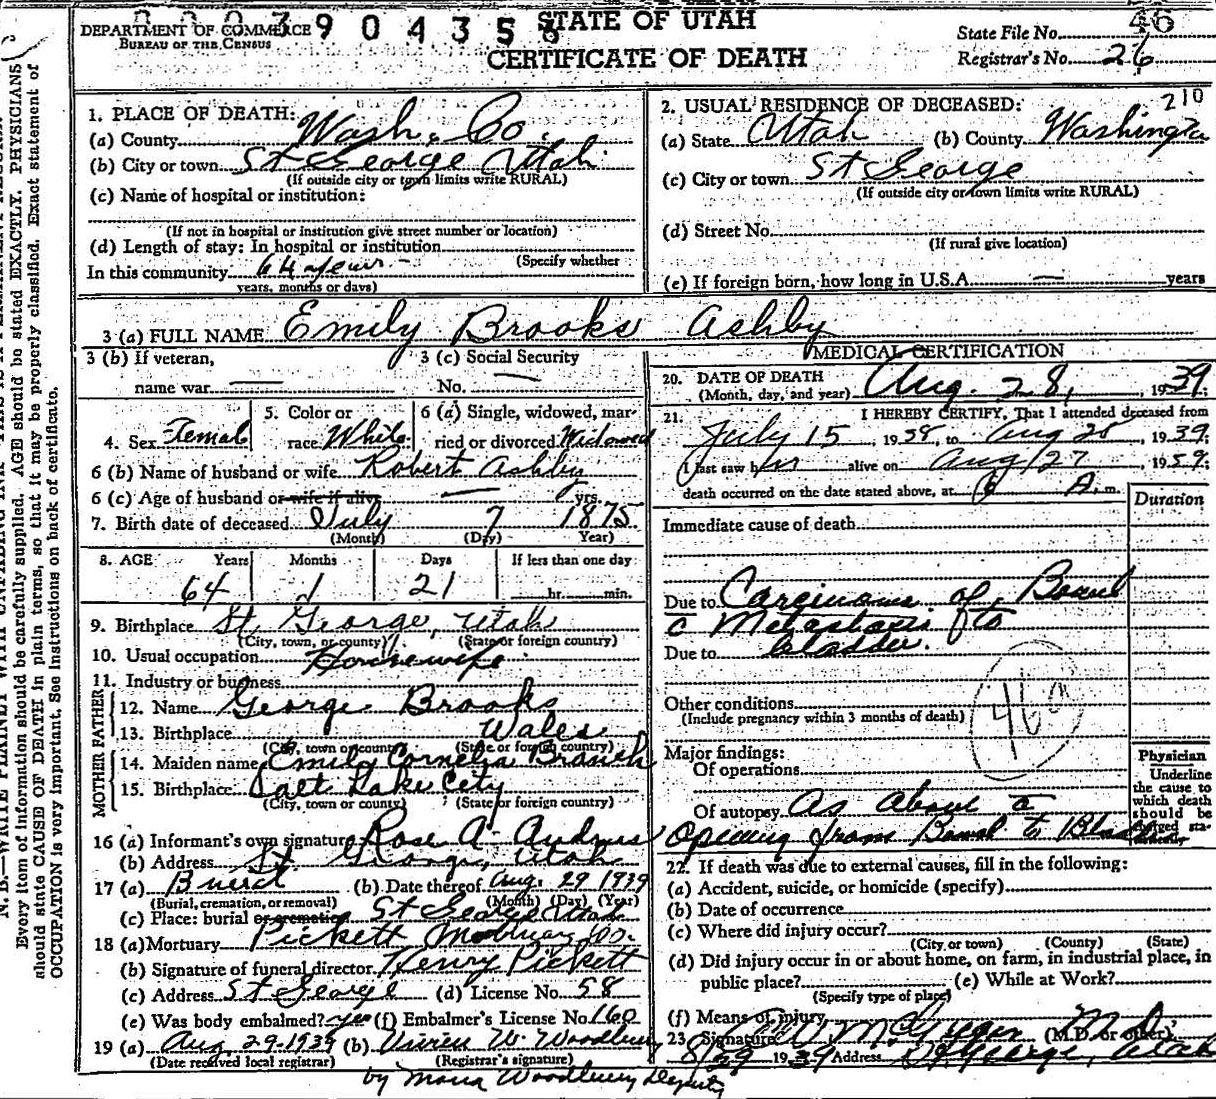 DEPARTMENT OF COMMERCE
BUREAU OF THE CENSUS
904358
STATE OF UTAH
CERTIFICATE OF DEATH
State File No. 46
Registrar's No. 26
N. B.—WRITE PLAINLY WITH UNFADING INK
Every item of information should be carefully supplied. AGE should be stated EXACTLY. PHYSICIANS
should state CAUSE OF DEATH in plain terms, so that it may be properly classified. Exact statement of
OCCUPATION is very important. See instructions on back of certificate.
1. PLACE OF DEATH:
(a) County Wash. Co.
(b) City or town St George Utah
(If outside city or town limits write RURAL)
(c) Name of hospital or institution:
(If not in hospital or institution give street number or location)
(d) Length of stay: In hospital or institution
(Specify whether
In this community 64 years
years, months or days)
2. USUAL RESIDENCE OF DECEASED: 210
(a) State Utah (b) County Washington
(c) City or town St George
(If outside city or town limits write RURAL)
(d) Street No.
(If rural give location)
(e) If foreign born, how long in U.S.A. — years
3 (a) FULL NAME Emily Brooks Ashby
3 (b) If veteran,
name war —
3 (c) Social Security
No. —
4. Sex Female
5. Color or
race White
6 (a) Single, widowed, mar-
ried or divorced Widowed
6 (b) Name of husband or wife Robert Ashby
6 (c) Age of husband or wife if alive — yrs.
7. Birth date of deceased July 7 1875
(Month) (Day) Year)
8. AGE Years Months Days If less than one day
64 1 21 hr. min.
9. Birthplace St. George, Utah
(City, town, or county) (State or foreign country)
10. Usual occupation Housewife
11. Industry or business
FATHER
12. Name George Brooks
13. Birthplace Wales
(City, town or county) (State or foreign country)
MOTHER
14. Maiden name Emily Cornelia Branch
15. Birthplace Salt Lake City
(City, town or county) (State or foreign country)
16 (a) Informant's own signature Rose A. Andrus
(b) Address St. George, Utah
17 (a) Buried (b) Date thereof Aug. 29 1939
(Burial, cremation, or removal) (Month) (Day) (Year)
(c) Place: burial or cremation St George Utah
18 (a) Mortuary Pickett Mortuary Co.
(b) Signature of funeral director Henry Pickett
(c) Address St George (d) License No. 58
(e) Was body embalmed? yes (f) Embalmer's License No. 160
19 (a) Aug. 29-1939 (b) W. Woodbury
(Date received local registrar) (Registrar's signature)
by Mona Woodbury Deputy
MEDICAL CERTIFICATION
20. DATE OF DEATH
(Month, day, and year) Aug. 28, 1939;
21. I HEREBY CERTIFY, That I attended deceased from
July 15, 1938, to Aug 28, 1939;
I last saw him alive on Aug 27, 1939;
death occurred on the date stated above, at 6 A. m.
Duration
Immediate cause of death
Due to Carcinoma of Bowel
c̄ Metastasis to
Due to bladder.
Other conditions
(Include pregnancy within 3 months of death)
46
Major findings:
Of operations
Of autopsy As above c̄
opening from Bowel to Bladder
Physician
Underline
the cause to
which death
should be
charged sta-
tistically
22. If death was due to external causes, fill in the following:
(a) Accident, suicide, or homicide (specify)
(b) Date of occurrence
(c) Where did injury occur?
(City or town) (County) (State)
(d) Did injury occur in or about home, on farm, in industrial place, in
public place? (e) While at Work?
(Specify type of place)
(f) Means of injury
23. Signature McGregor M.D. (M.D. or other)
8/29 1939 Address St. George, Utah